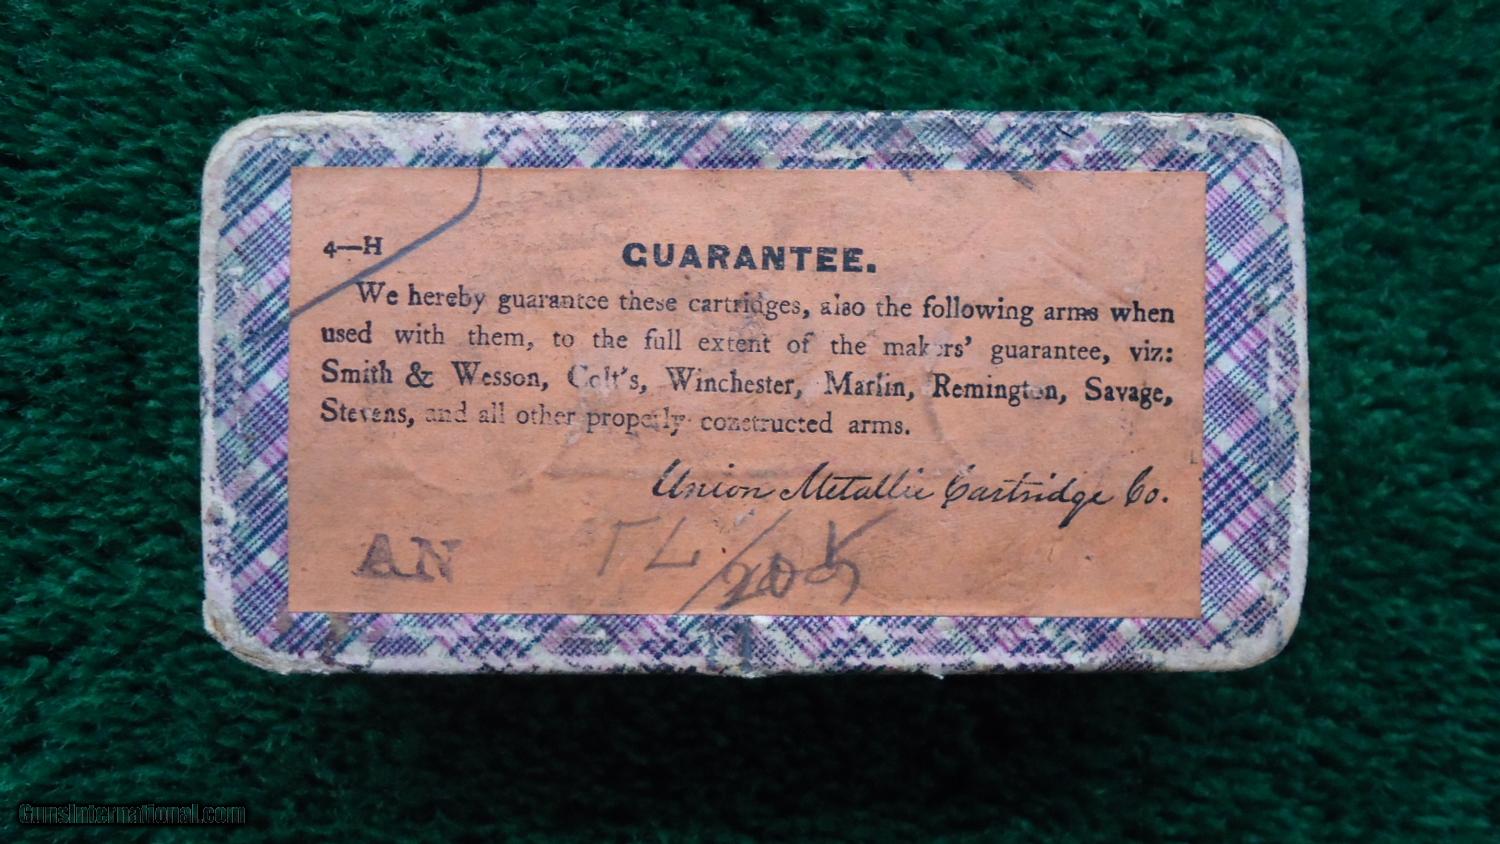 4—H
GUARANTEE.
We hereby guarantee these cartridges, also the following arms when
used with them, to the full extent of the makers' guarantee, viz:
Smith & Wesson, Colt's, Winchester, Marlin, Remington, Savage,
Stevens, and all other properly constructed arms.
Union Metallic Cartridge Co.
AN
GunsInternational.com